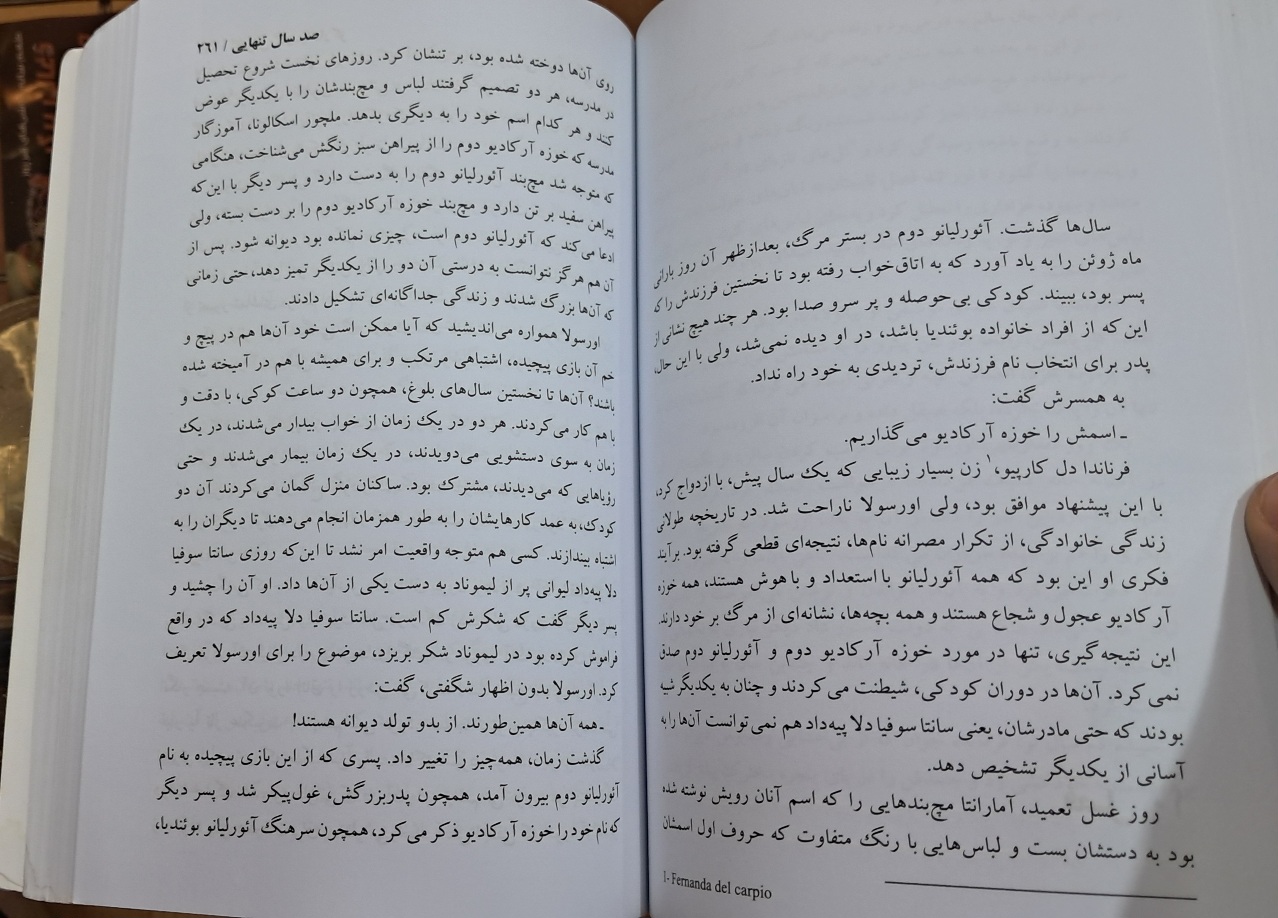 سال‌ها گذشت. آئورلیانو دوم در بستر مرگ، بعدازظهر آن روز بارانی
ماه ژوئن را به یاد آورد که به اتاق‌خواب رفته بود تا نخستین فرزندش را که
پسر بود، ببیند. کودکی بی‌حوصله و پر سرو صدا بود. هر چند هیچ نشانی از
این که از افراد خانواده بوئندیا باشد، در او دیده نمی‌شد، ولی با این حال،
پدر برای انتخاب نام فرزندش، تردیدی به خود راه نداد.
به همسرش گفت:
ـ اسمش را خوزه آرکادیو می‌گذاریم.
فرناندا دل کارپیو،۱ زن بسیار زیبایی که یک سال پیش، با ازدواج کرد،
با این پیشنهاد موافق بود، ولی اورسولا ناراحت شد. در تاریخچه طولانی
زندگی خانوادگی، از تکرار مصرانه نام‌ها، نتیجه‌ای قطعی گرفته بود. برآیند
فکری او این بود که همه آئورلیانو با استعداد و باهوش هستند، همه خوزه
آرکادیو عجول و شجاع هستند و همه بچه‌ها، نشانه‌ای از مرگ بر خود دارند.
این نتیجه‌گیری، تنها در مورد خوزه آرکادیو دوم و آئورلیانو دوم صدق
نمی‌کرد. آن‌ها در دوران کودکی، شیطنت می‌کردند و چنان به یکدیگر شبیه
بودند که حتی مادرشان، یعنی سانتا سوفیا دلا پیه‌داد هم نمی‌توانست آن‌ها را به
آسانی از یکدیگر تشخیص دهد.
روز غسل تعمید، آمارانتا مچ‌بندهایی را که اسم آنان رویش نوشته شده
بود به دستشان بست و لباس‌هایی با رنگ متفاوت که حروف اول اسمشان
1- Fernanda del carpio
صد سال تنهایی / ۲۶۱
روی آن‌ها دوخته شده بود، بر تنشان کرد. روزهای نخست شروع تحصیل
در مدرسه، هر دو تصمیم گرفتند لباس و مچ‌بندشان را با یکدیگر عوض
کنند و هر کدام اسم خود را به دیگری بدهد. ملچور اسکالونا، آموزگار
مدرسه که خوزه آرکادیو دوم را از پیراهن سبز رنگش می‌شناخت، هنگامی
که متوجه شد مچ‌بند آئورلیانو دوم را به دست دارد و پسر دیگر با این‌که
پیراهن سفید بر تن دارد و مچ‌بند خوزه آرکادیو دوم را بر دست بسته، ولی
ادعا می‌کند که آئورلیانو دوم است، چیزی نمانده بود دیوانه شود. پس از
آن هم هرگز نتوانست به درستی آن دو را از یکدیگر تمیز دهد، حتی زمانی
که آن‌ها بزرگ شدند و زندگی جداگانه‌ای تشکیل دادند.
اورسولا همواره می‌اندیشید که آیا ممکن است خود آن‌ها هم در پیچ و
خم آن بازی پیچیده، اشتباهی مرتکب و برای همیشه با هم در آمیخته شده
باشند؟ آن‌ها تا نخستین سال‌های بلوغ، همچون دو ساعت کوکی، با دقت و
با هم کار می‌کردند. هر دو در یک زمان از خواب بیدار می‌شدند، در یک
زمان به سوی دستشویی می‌دویدند، در یک زمان بیمار می‌شدند و حتی
رؤیاهایی که می‌دیدند، مشترک بود. ساکنان منزل گمان می‌کردند آن دو
کودک، به عمد کارهایشان را به طور همزمان انجام می‌دهند تا دیگران را به
اشتباه بیندازند. کسی هم متوجه واقعیت امر نشد تا این‌که روزی سانتا سوفیا
دلا پیه‌داد لیوانی پر از لیموناد به دست یکی از آن‌ها داد. او آن را چشید و
پسر دیگر گفت که شکرش کم است. سانتا سوفیا دلا پیه‌داد که در واقع
فراموش کرده بود در لیموناد شکر بریزد، موضوع را برای اورسولا تعریف
کرد. اورسولا بدون اظهار شگفتی، گفت:
ـ همه آن‌ها همین‌طورند. از بدو تولد دیوانه هستند!
گذشت زمان، همه‌چیز را تغییر داد. پسری که از این بازی پیچیده به نام
آئورلیانو دوم بیرون آمد، همچون پدربزرگش، غول‌پیکر شد و پسر دیگر
که نام خود را خوزه آرکادیو ذکر می‌کرد، همچون سرهنگ آئورلیانو بوئندیا،